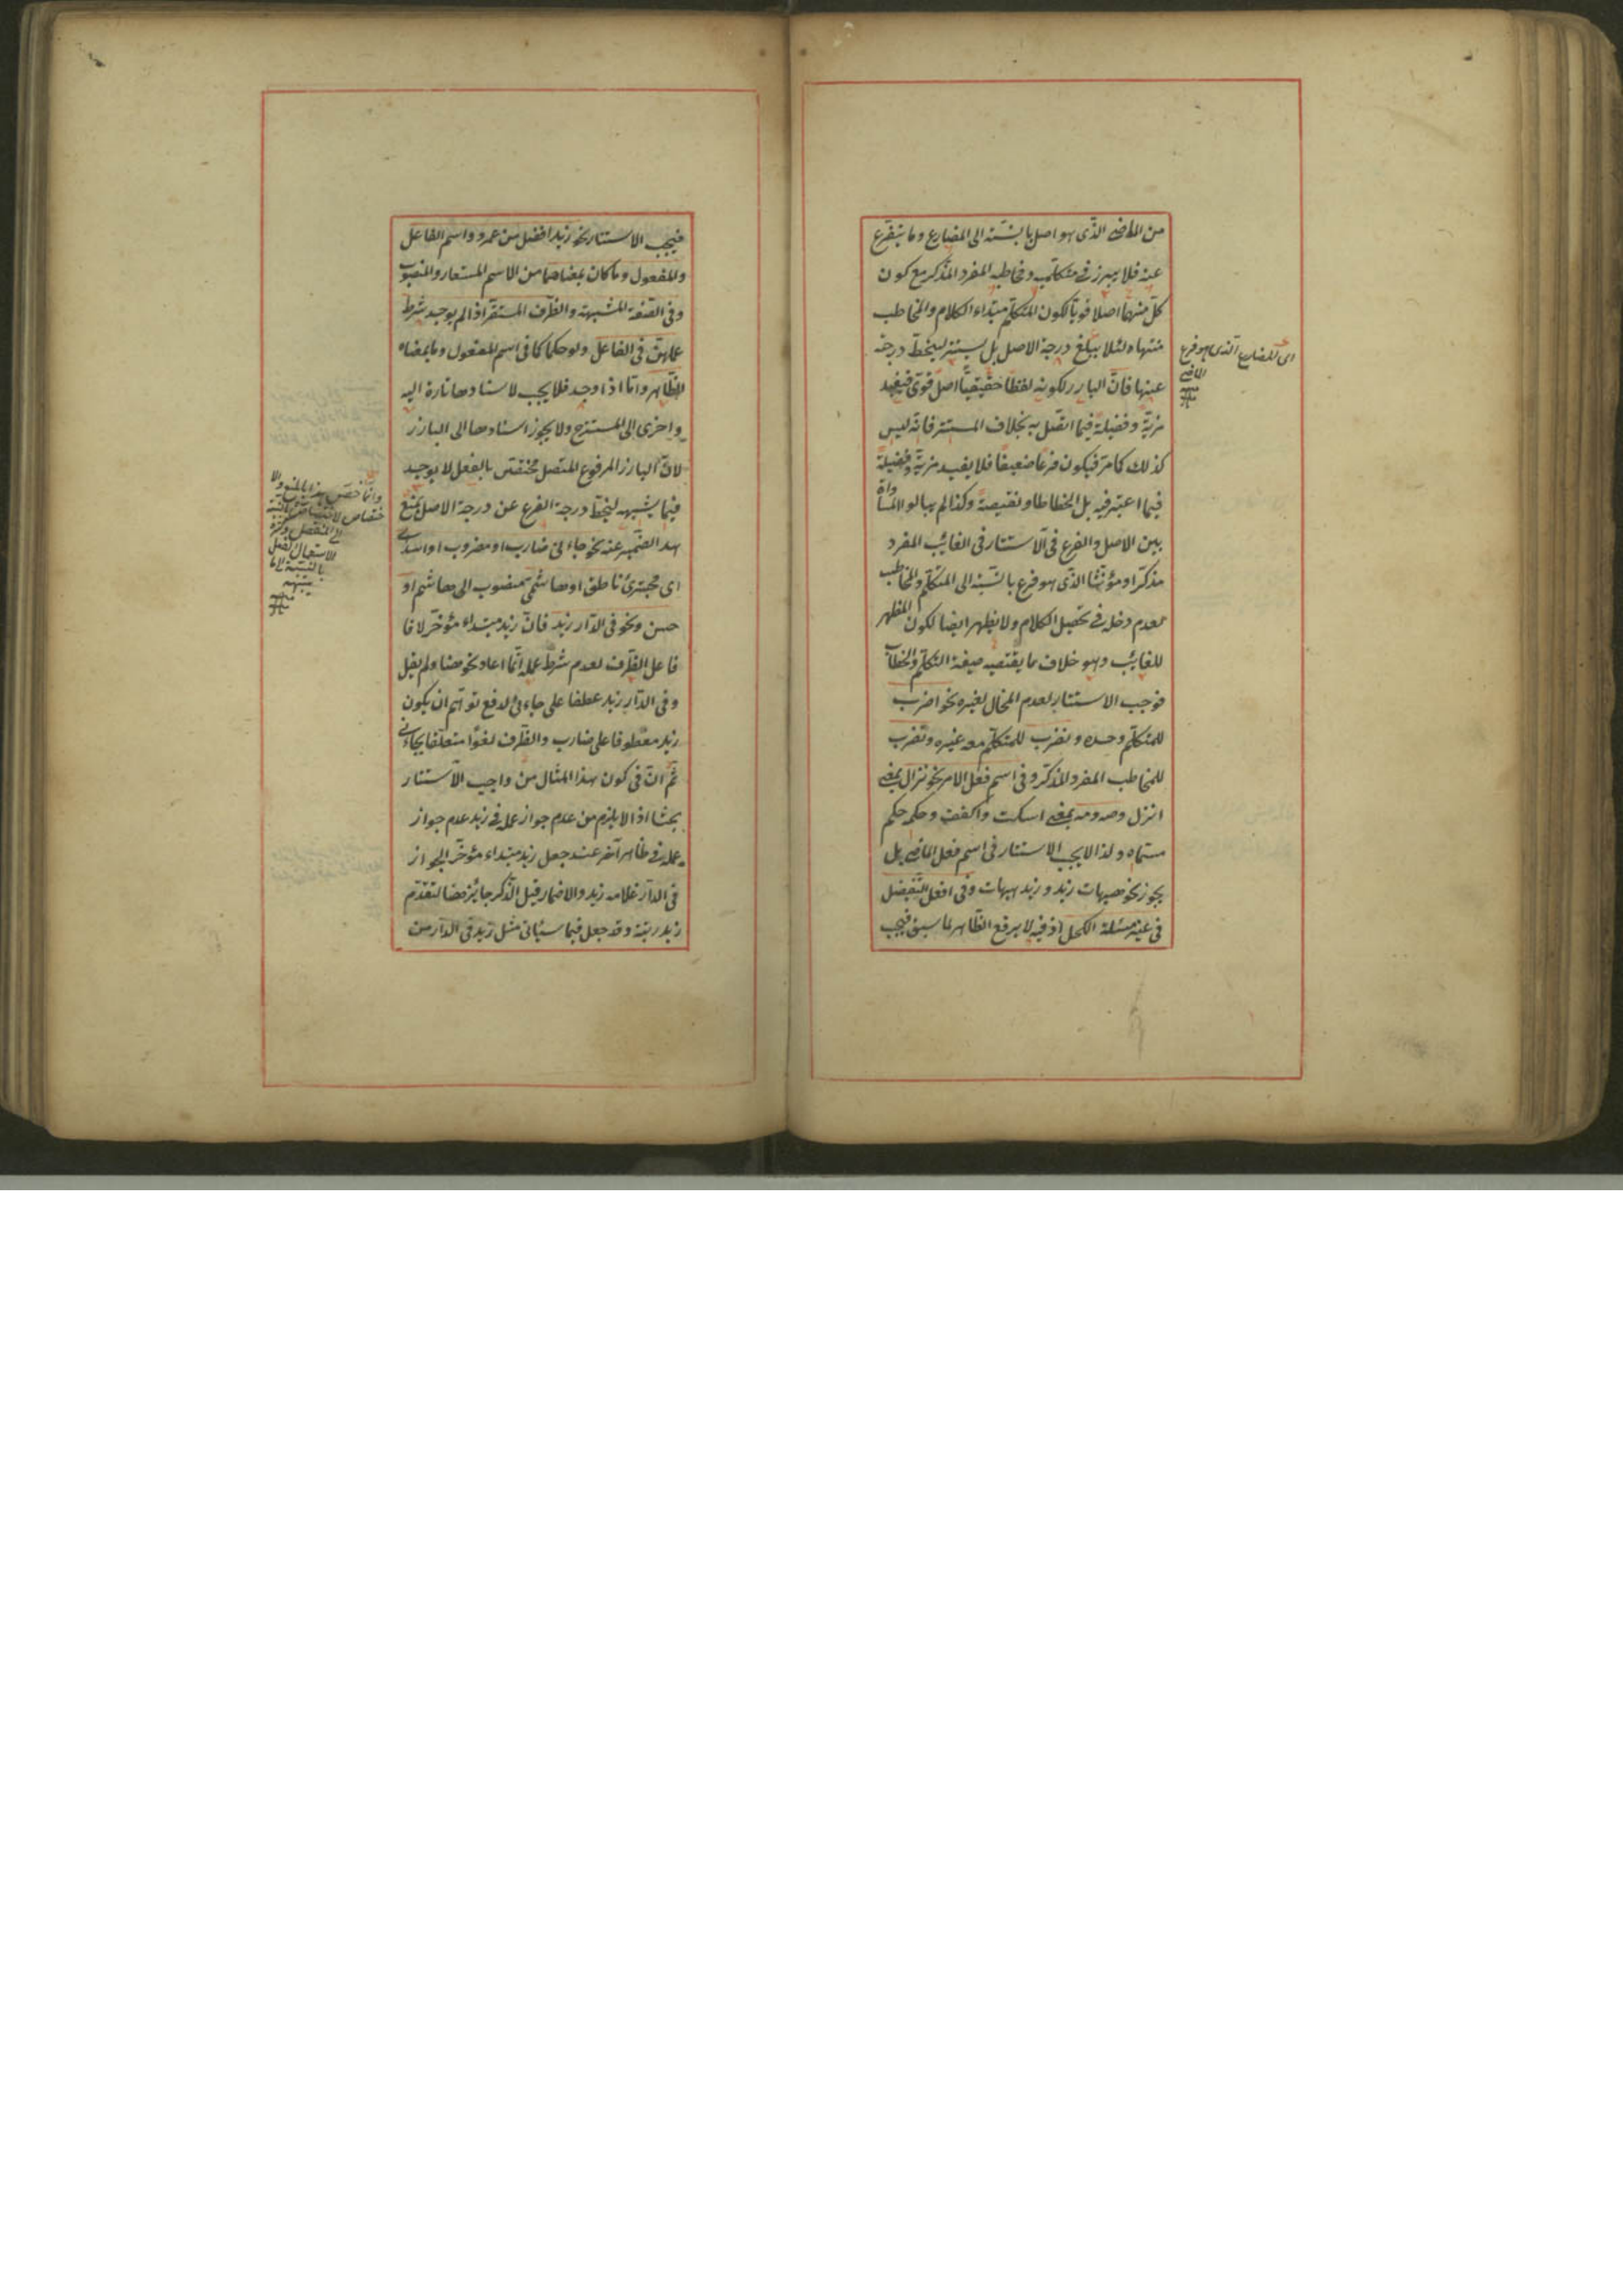 من الماضى الذى هو اصل بالنسبة الى المضارع وما يتفرع
عنه فلا يبرز فى متكلميه ومخاطبه المفرد المذكر مع كون
كل منهما اصلا قويا لكون المتكلم مبتداء الكلام والمخاطب
منتهاه لئلا يبلغ درجة الاصل بل يستتر لينحط درجته
عنها فان البارز لكونه لفظا حقيقيا اصل قوى فيفيد
مزية وفضيلة فيما اتصل به بخلاف المستتر فانه ليس
كذلك كما مر فيكون فرعا ضعيفا فلا يفيد مزية وفضيلة
فيما اعتبر فيه بل انحطاطا ونقيصة وكذا لم يبالوا المساواة
بين الاصل والفرع فى الاستتار فى الغائب المفرد
مذكرا او مؤنثا الذى هو فرع بالنسبة الى المتكلم والمخاطب
لعدم دخله فى تحصيل الكلام ولا يظهر ايضا لكون المظهر
للغائب وهو خلاف ما يقتضيه صيغة التكلم والخطاب
فوجب الاستتار لعدم المجال لغيره نحو اضرب
للمتكلم وحده ونضرب للمتكلم معه غيره وتضرب
للمخاطب المفرد المذكر وفى اسم فعل الامر نحو نزال بمعنى
انزل وصه ومه بمعنى اسكت واكفف وحكمه حكم
مسماه ولذا لا يجب الاستتار فى اسم فعل الماضى بل
يجوز نحو هيهات زيد وزيد هيهات وفى افعل التفضيل
فى غير مسئلة الكحل اذ فيه لا يرفع الظاهر لما سبق فيجب
اى للمضارع الذى هو فرع
الماضى
منه
فيجب الاستتار نحو زيد افضل من عمرو واسم الفاعل
والمفعول وما كان بمعناهما من الاسم المستعار والمنسوب
وفى الصفة المشبهة والظرف المستقر اذا لم يوجد شرط
عملهن فى الفاعل ولو حكما كما فى اسم المفعول وما بمعناه
الظاهر واما اذا وجد فلا يجب لاسنادها تارة اليه
واخرى الى المستتر ولا يجوز اسنادها الى البارز
لان البارز المرفوع المتصل مختص بالفعل لا يوجد
فيما يشبهه لينحط درجة الفرع عن درجة الاصل بمنع
هذا الضمير عنه نحو جاءنى ضارب او مضروب او اسد
اى مجترئ ناطق او هاشمى منسوب الى هاشم او
حسن ونحو فى الدار زيد فان زيد مبتداء مؤخر لا فا
فاعل الظرف لعدم شرط عمله انما اعاد نحو هنا ولم يقل
وفى الدار زيد عطفا على جاءنى لدفع توهم ان يكون
زيد معطوفا على ضارب والظرف لغوا متعلقا بجاءنى
ثم ان فى كون هذا المثال من واجب الاستتار
بحثا اذ لا يلزم من عدم جواز عمله فى زيد عدم جواز
عمله فى ظاهر آخر عند جعل زيد مبتداء مؤخر الجواز
فى الدار غلامه زيد والاضمار قبل الذكر جائز هنا لتقدم
زيد رتبة وقد جعل فيما سيأتى مثل زيد فى الدار من
وانما خص
بالنسبة الى ما
يشبهه
منه